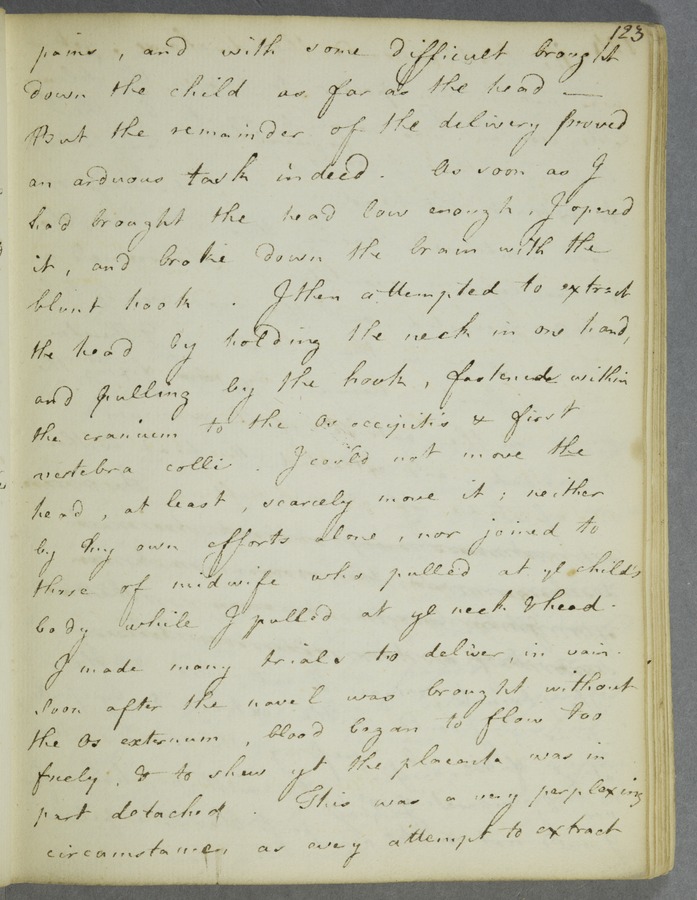 123
pains, and with some difficult brought
down the child as far as the head —
But the remainder of the delivery proved
an arduous task indeed. As soon as I
had brought the head low enough, I opened
it, and broke down the brain with the
blunt hook. I then attempted to extract
the head by holding the neck in one hand,
and pulling by the hook, fastened within
the cranium to the Os occipitis & first
vertebra colli. I could not move the
head, at least, scarcely move it; neither
by my own efforts alone, nor joined to
those of midwife who pulled at ye child's
body while I pulled at ye neck & head.
I made many trials to deliver, in vain.
Soon after the navel was brought without
the Os externum, blood began to flow too
freely, & to shew yt the placenta was in
part detached. This was a very perplexing
circumstances as every attempt to extract